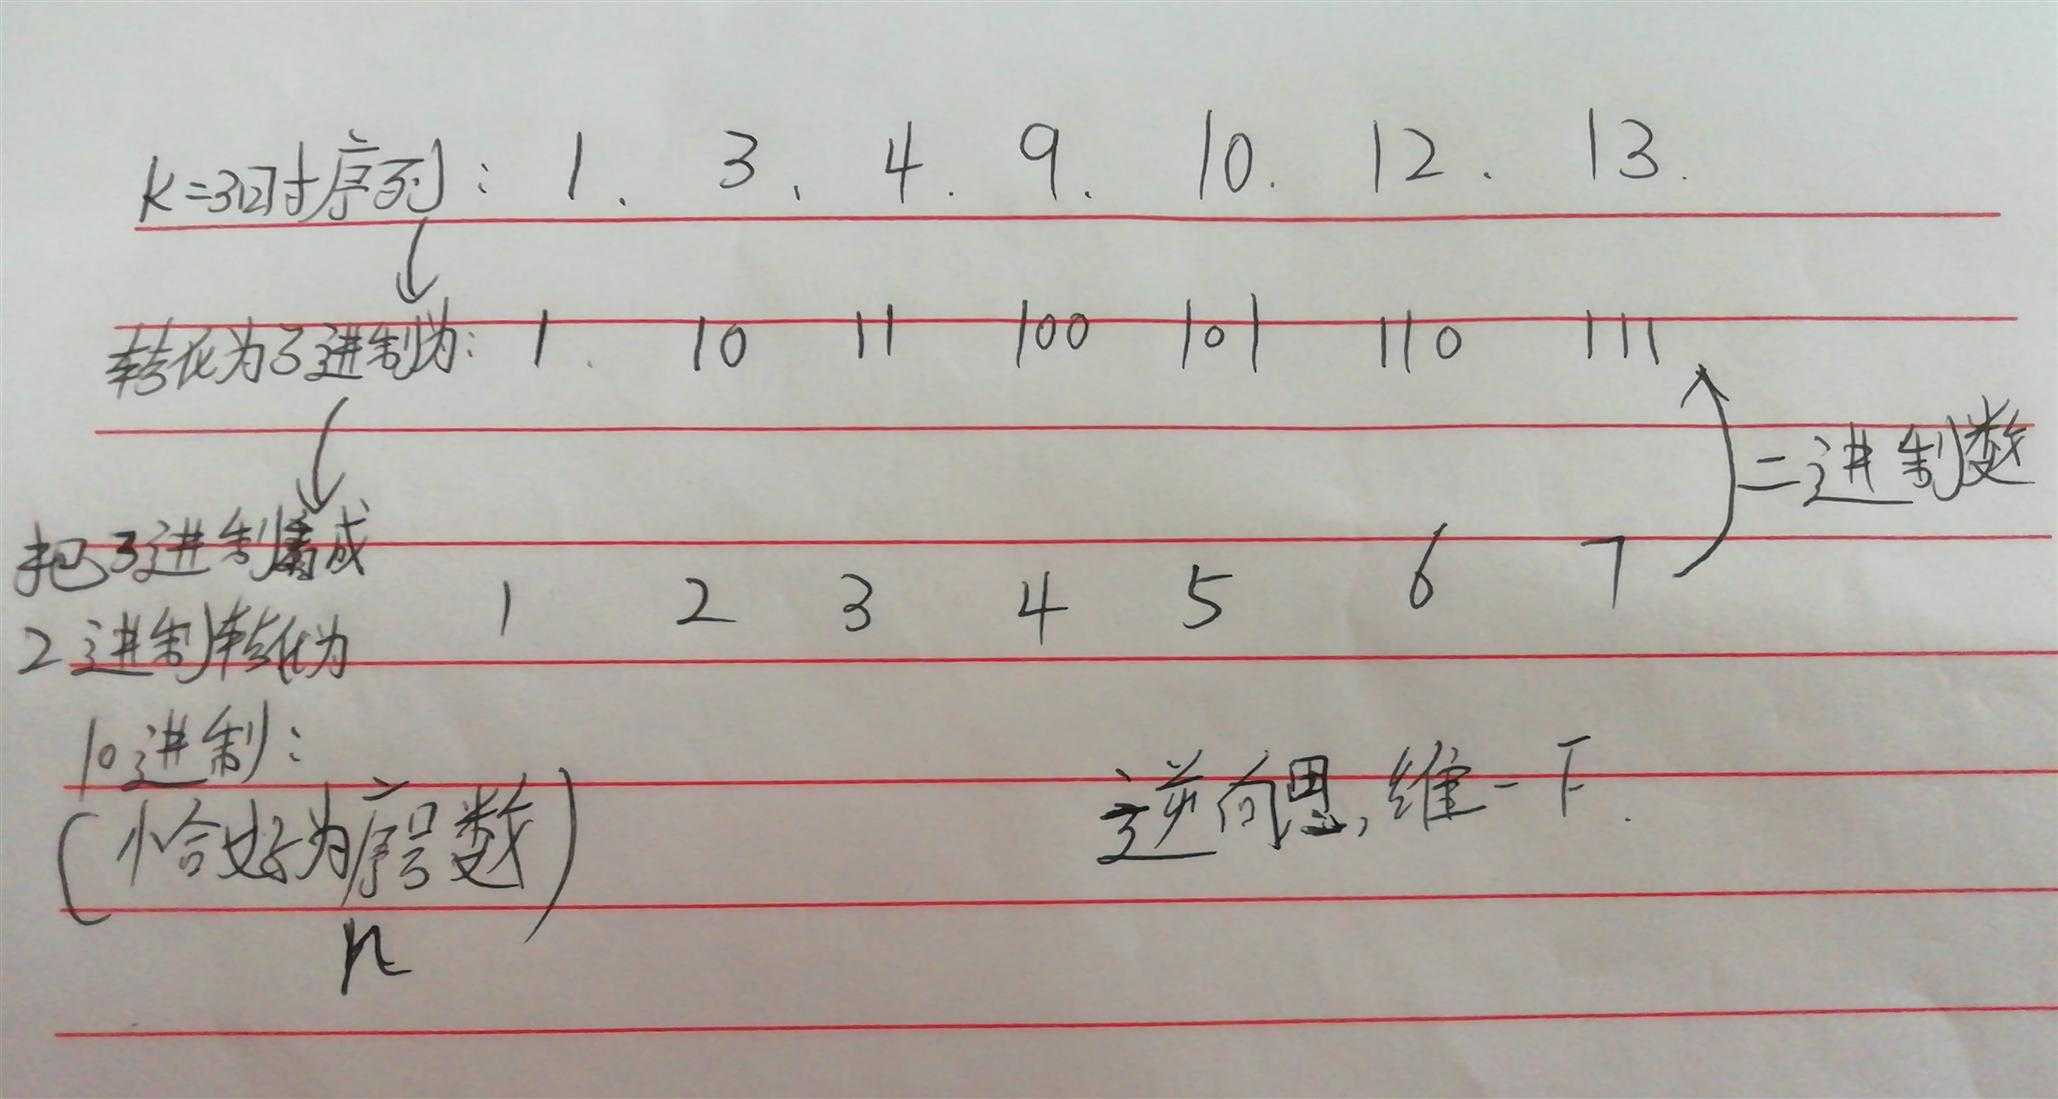 k=3时序列: 1、 3、 4. 9. 10. 12. 13.
转化为3进制为: 1. 10 11 100 101 110 111
二进制数
把3进制看成
2进制转化为 1 2 3 4 5 6 7
10进制:
(恰好为序号数)
n
逆向思维一下.